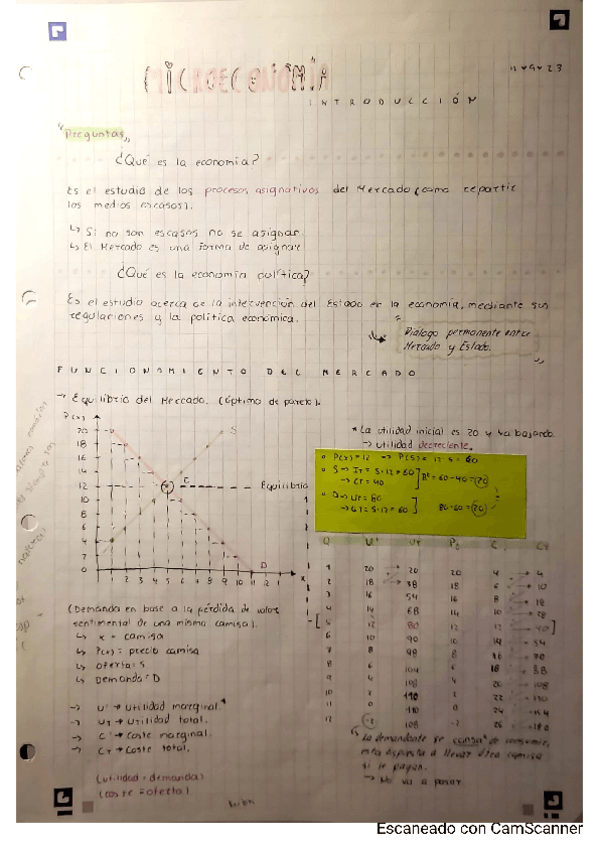 MICROECONOMÍA
11 • 9 • 23
INTRODUCCIÓN
"Preguntas"
¿Qué es la economía?
Es el estudio de los procesos asignativos del Mercado (como repartir
los medios escasos).
↳ Si no son escasos no se asignan.
↳ El Mercado es una forma de asignar
¿Qué es la economía política?
Es el estudio acerca de la intervención del Estado en la economía, mediante sus
regulaciones y la política económica.
Dialogo permanente entre
Mercado y Estado.
FUNCIONAMIENTO DEL MERCADO
→ Equilibrio del Mercado. (óptimo de pareto).
P(x)
20
18
16
14
12
10
8
6
4
2
0
1 2 3 4 5 6 7 8 9 10 11 12 13
S
E
Equilibrio
D
x
* La utilidad inicial es 20 y va bajando
→ utilidad decreciente.
P(x)=12 → P(5)= 12·5 = 60
S → IT = 5·12 = 60
→ CT = 40
Bº = 60-40 = 20
D → UT = 80
→ GT = 5·12 = 60
80-60 = 20
Q U' UT C' CT
1 20 20 20 4 4
2 18 38 18 6 10
3 16 54 16 8 18
4 14 68 14 10 28
5 12 80 12 12 40
6 10 90 10 14 54
7 8 98 8 16 70
8 6 104 6 18 88
9 4 108 4 20 108
10 2 110 2 22 130
11 0 110 0 24 154
12 -2 108 -2 26 180
(Demanda en base a la pérdida de valor
sentimental de una misma camisa).
↳ x = camisa
↳ P(x) = precio camisa
↳ Oferta: S
↳ Demanda: D
→ U' → Utilidad marginal.*
→ UT → Utilidad total.
→ C' → Coste marginal.
→ CT → Coste total.
(utilidad = demanda)
(coste = oferta)
La demandante se cansa de consumir,
esta dispuesta a llevar otra camisa
si le pagan.
→ No va a pasar
Escaneado con CamScanner